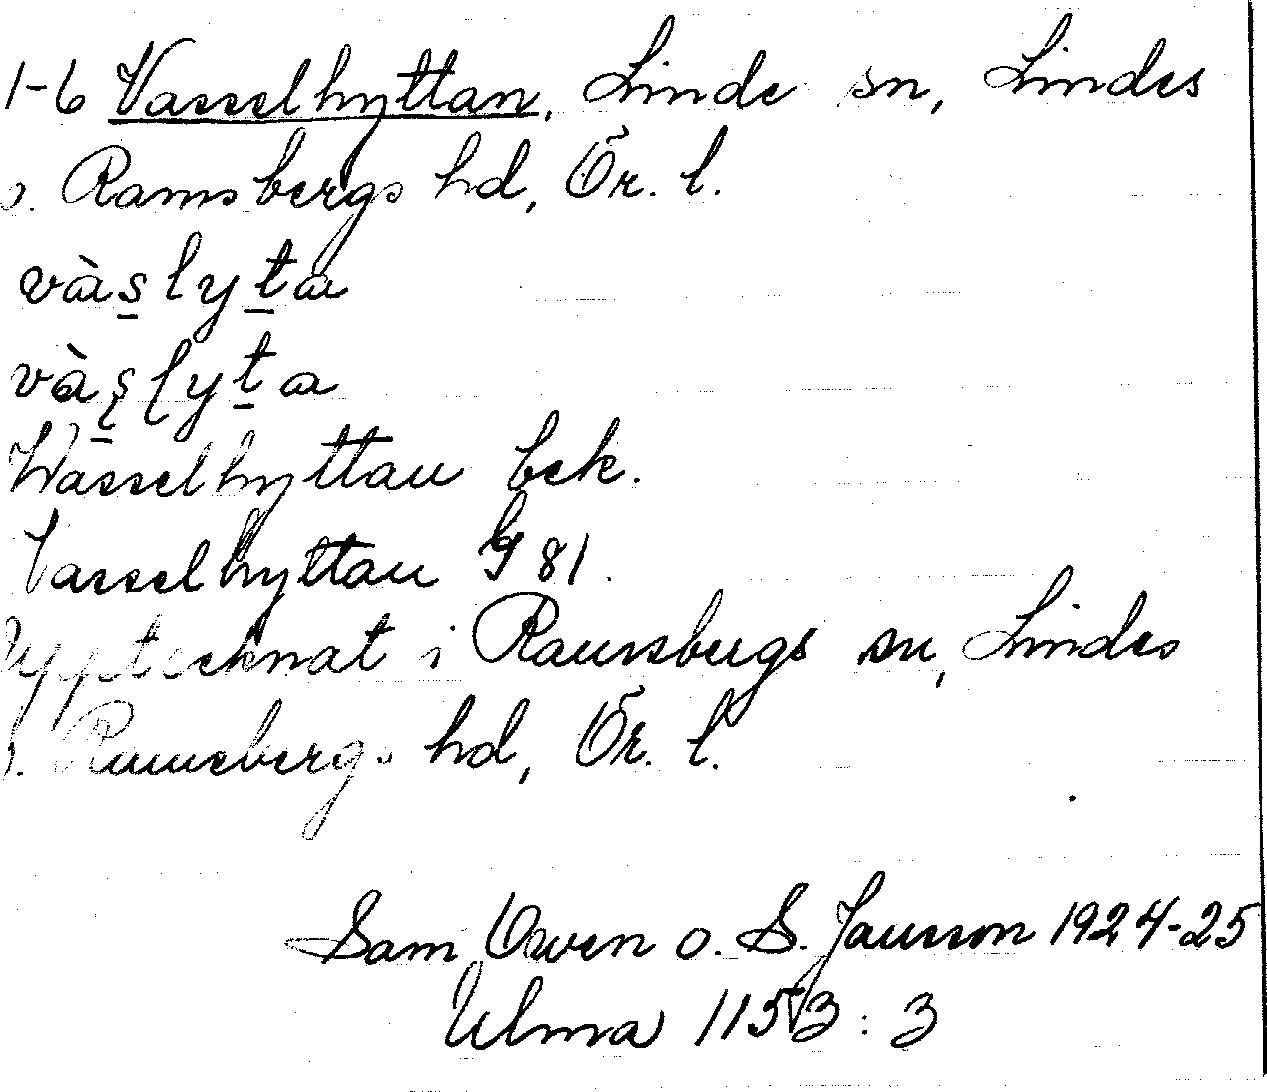 1-6 Vasselhyttan, Linde sn, Lindes
o. Ramsbergs hd, Ör. l.
vàs̲lyt̲a
vàş̲ļyt̲a
Wasselhyttan bek.
Vasselhyttan G 81.
Upptecknat i Ramsbergs sn, Lindes
o. Ramsbergs hd, Ör. l.
Sam Owen o. S. Jansson 1924-25
Ulma 1153:3